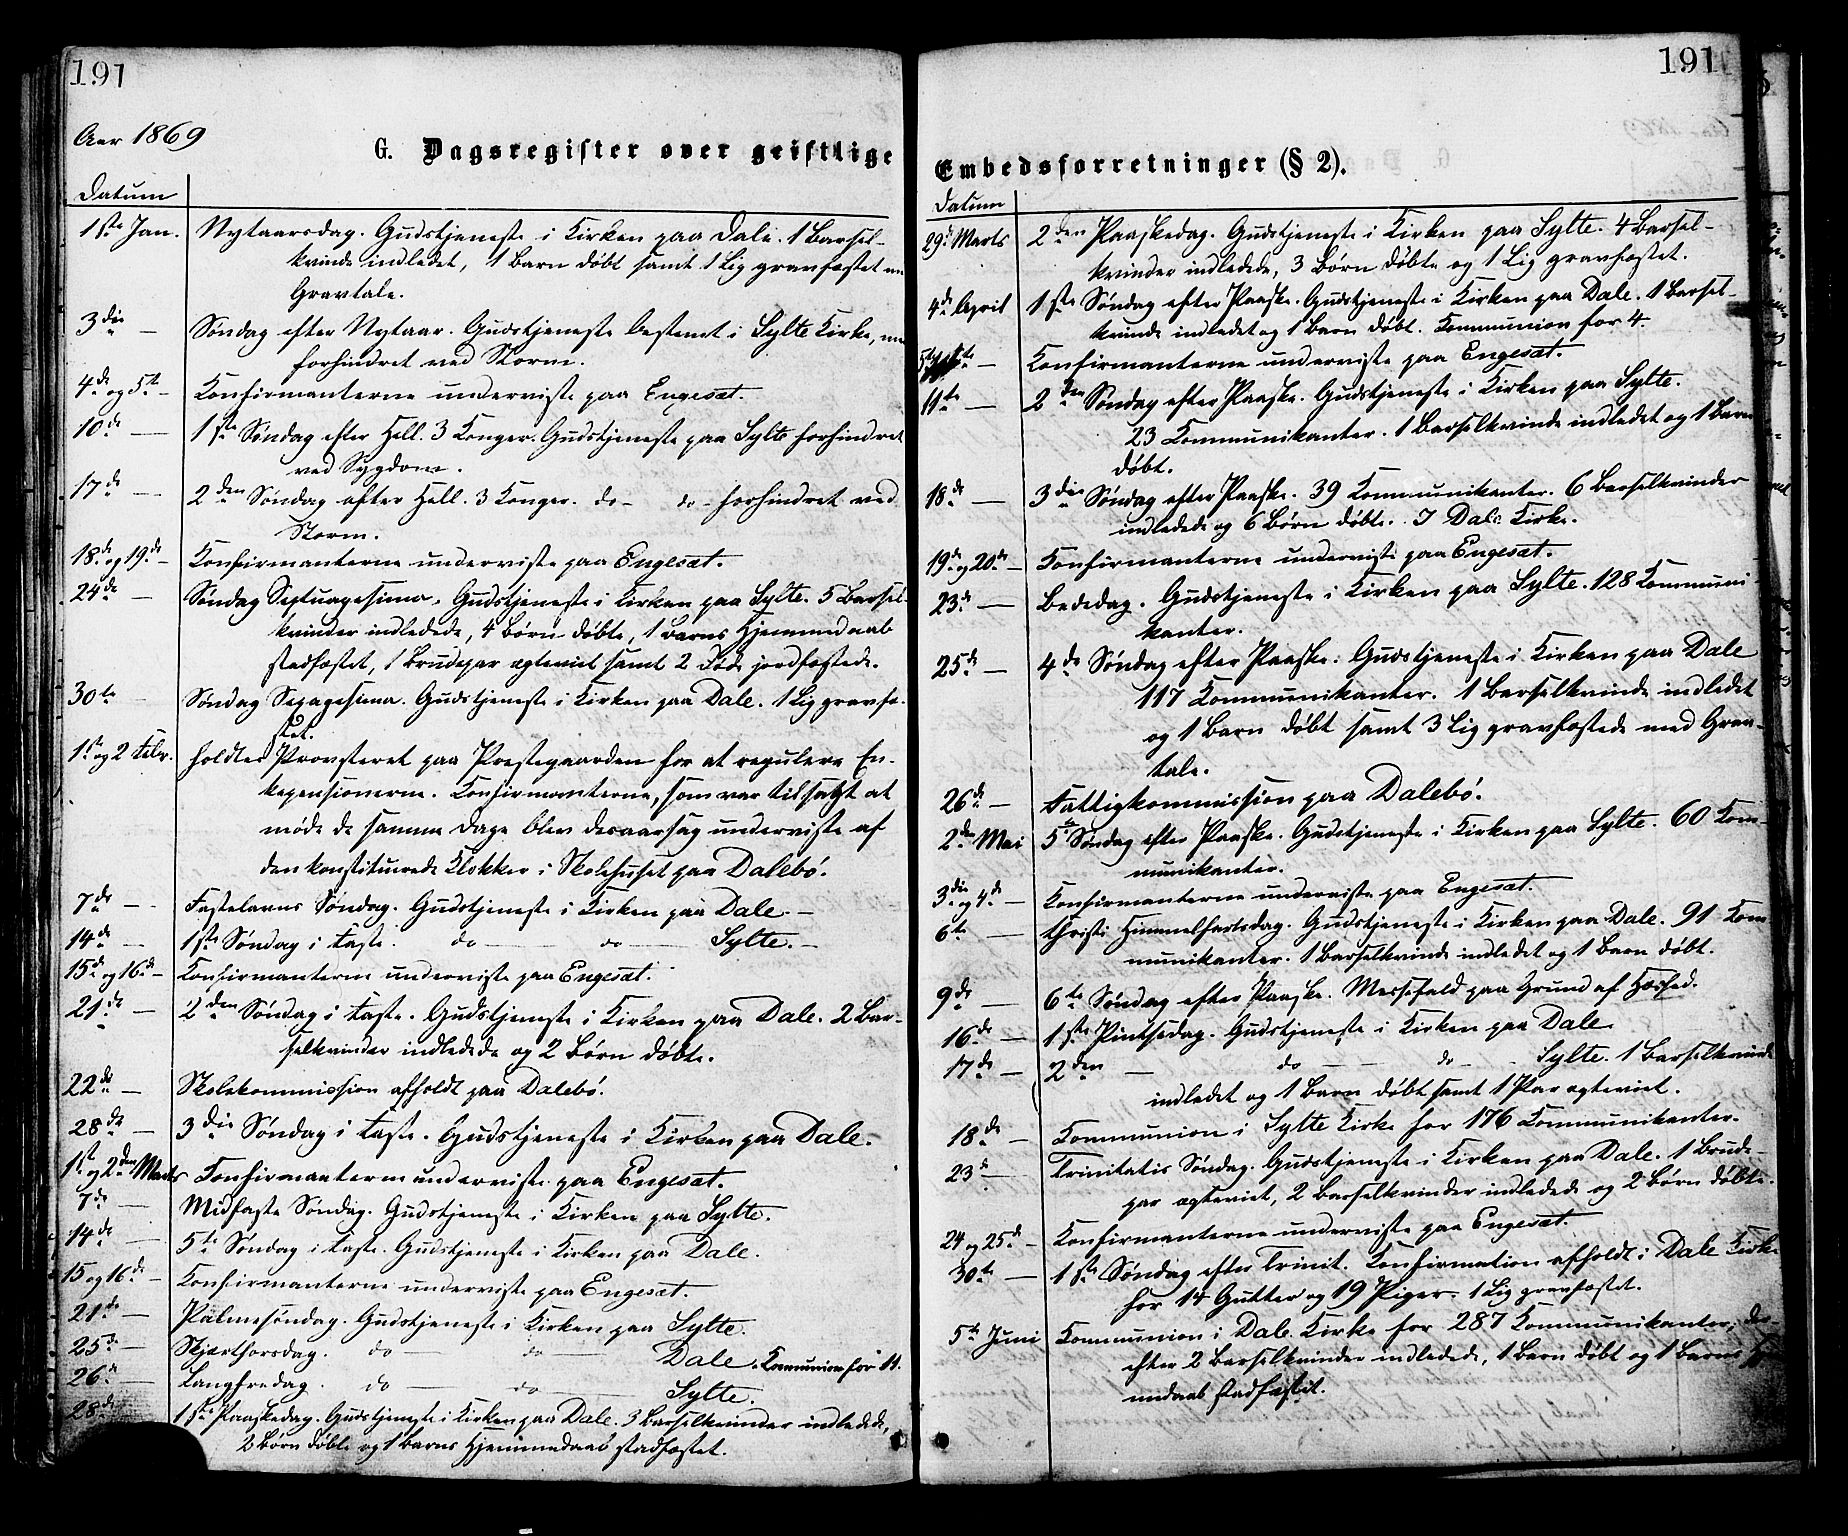 191
Aar 1869
G. Dagsregister over geistlige
Datum
1ste Jan. Nytaarsdag. Gudstjeneste i Kirken paa Dale. 1 Barsel-
kvinde indledet, 1 Barn døbt samt 1 Lig gravfæstet m
Gravtale.
3die — Søndag efter Nytaar. Gudstjeneste bestemt i Sylte Kirke, men
forhindret ved Storm.
4de og 5te — Konfirmanterne underviste paa Engesæt.
10de — 1ste Søndag efter Hell. 3 Konger. Gudstjeneste paa Sylte forhindret
ved Sygdom.
17de — 2den Søndag efter Hell. 3 Konger. do — do — forhindret ved
Storm.
18de og 19de — Konfirmanterne underviste paa Engesæt.
24de — Søndag Septuagesima. Gudstjeneste i Kirken paa Sylte. 5 Barsel-
kvinder indledede, 4 Børn døbte, 1 Barns Hjemmedaab
stadfæstet, 1 Brudepar ægteviet samt 2 Døde jordfæstede.
30te — Søndag Sexagesima. Gudstjeneste i Kirken paa Dale. 1 Lig gravfæ-
stet.
1ste og 2 Febr. holdtes Provsteret paa Prestegaarden for at regulere En-
kepensionerne. Konfirmanterne, som var tilsagt at
møde de samme Dage blev desaarsag underviste af
den konstituerede Klokker i Skolehuset paa Dalebø.
7de — Fastelavns Søndag. Gudstjeneste i Kirken paa Dale. —
14de — 1ste Søndag i Faste. do — do — Sylte. —
15de og 16de — Konfirmanterne underviste paa Engesæt.
21de — 2den Søndag i Faste. Gudstjeneste i Kirken paa Dale. 2 Bar-
selkvinder indledede og 2 Børn døbte.
22de — Skolekommission afholdt paa Dalebø.
28de — 3die Søndag i Faste. Gudstjeneste i Kirken paa Dale.
1ste og 2den Marts Konfirmanterne underviste paa Engesæt.
7de — Midfaste Søndag. Gudstjeneste i Kirken paa Sylte.
14de — 5te Søndag i Faste. Gudstjeneste i Kirken paa Dale.
15 og 16de — Konfirmanterne underviste paa Engesæt.
21de — Palmesøndag. Gudstjeneste i Kirken paa Sylte.
25de — Skjærthorsdag. do — do — Dale. Kommunion for 11.
26de — Langfredag. do — do — Sylte.
28de 1ste Paaskedag. Gudstjeneste i Kirken paa Dale. 3 Barselkvinder indledede,
2 Børn døbte og 1 Barns Hjemmedaab stadfæstet.
191
Embedsforretninger (§ 2).
Datum
29de Marts 2den Paaskedag. Gudstjeneste i Kirken paa Sylte. 4 Barsel-
kvinder indledede, 3 Børn døbte og 1 Lig gravfæstet.
4de April 1ste Søndag efter Paaske. Gudstjeneste i Kirken paa Dale. 1 Barsel-
kvinde indledet og 1 Barn døbt. Kommunion for 4.
5te — Konfirmanterne underviste paa Engesæt.
11te — 2den Søndag efter Paaske. Gudstjeneste i Kirken paa Sylte.
23 Kommunikanter. 1 Barselkvinde indledet og 1 Barn
døbt.
18de — 3die Søndag efter Paaske. 39 Kommunikanter. 6 Barselkvinder
indledede og 6 Børn døbte. I Dale Kirke.
19de og 20de — Konfirmanterne underviste paa Engesæt.
23de — Bededag. Gudstjeneste i Kirken paa Sylte. 128 Kommuni-
kanter.
25de — 4de Søndag efter Paaske. Gudstjeneste i Kirken paa Dale
117 Kommunikanter. 1 Barselkvinde indledet
og 1 Barn døbt samt 3 Lig gravfæstede med Grav-
tale.
26de — Fattigkommission paa Dalebø.
2den Mai 5te Søndag efter Paaske. Gudstjeneste i Kirken paa Sylte. 60 Kom-
munikanter.
3die og 4de — Konfirmanterne underviste paa Engesæt.
6te — Christi Himmelfartsdag. Gudstjeneste i Kirken paa Dale. 91 Kom
munikanter. 1 Barselkvinde indledet og 1 Barn døbt.
9de — 6te Søndag efter Paaske. Messefald paa Grund af Hæshed.
16de — 1ste Pintsedag. Gudstjeneste i Kirken paa Dale.
17de — 2den — do — do — Sylte. 1 Barselkvinde
indledet og 1 Barn døbt samt 1 Par ægteviet.
18de — Kommunion i Sylte Kirke for 176 Kommunikanter.
23de — Trinitatis Søndag. Gudstjeneste i Kirken paa Dale. 1 Brude-
par ægteviet, 2 Barselkvinder indledede og 2 Børn døbte.
24 og 25de — Konfirmanterne underviste paa Engesæt.
30te — 1ste Søndag efter Trinit. Konfirmation afholdt i Dale Kirke
for 14 Gutter og 19 Piger. 1 Lig gravfæstet.
5te Juni Kommunion i Dale Kirke for 287 Kommunikanter, der
efter 2 Barselkvinder indledede, 1 Barn døbt og 1 Barns Hjem
medaab stadfæstet.